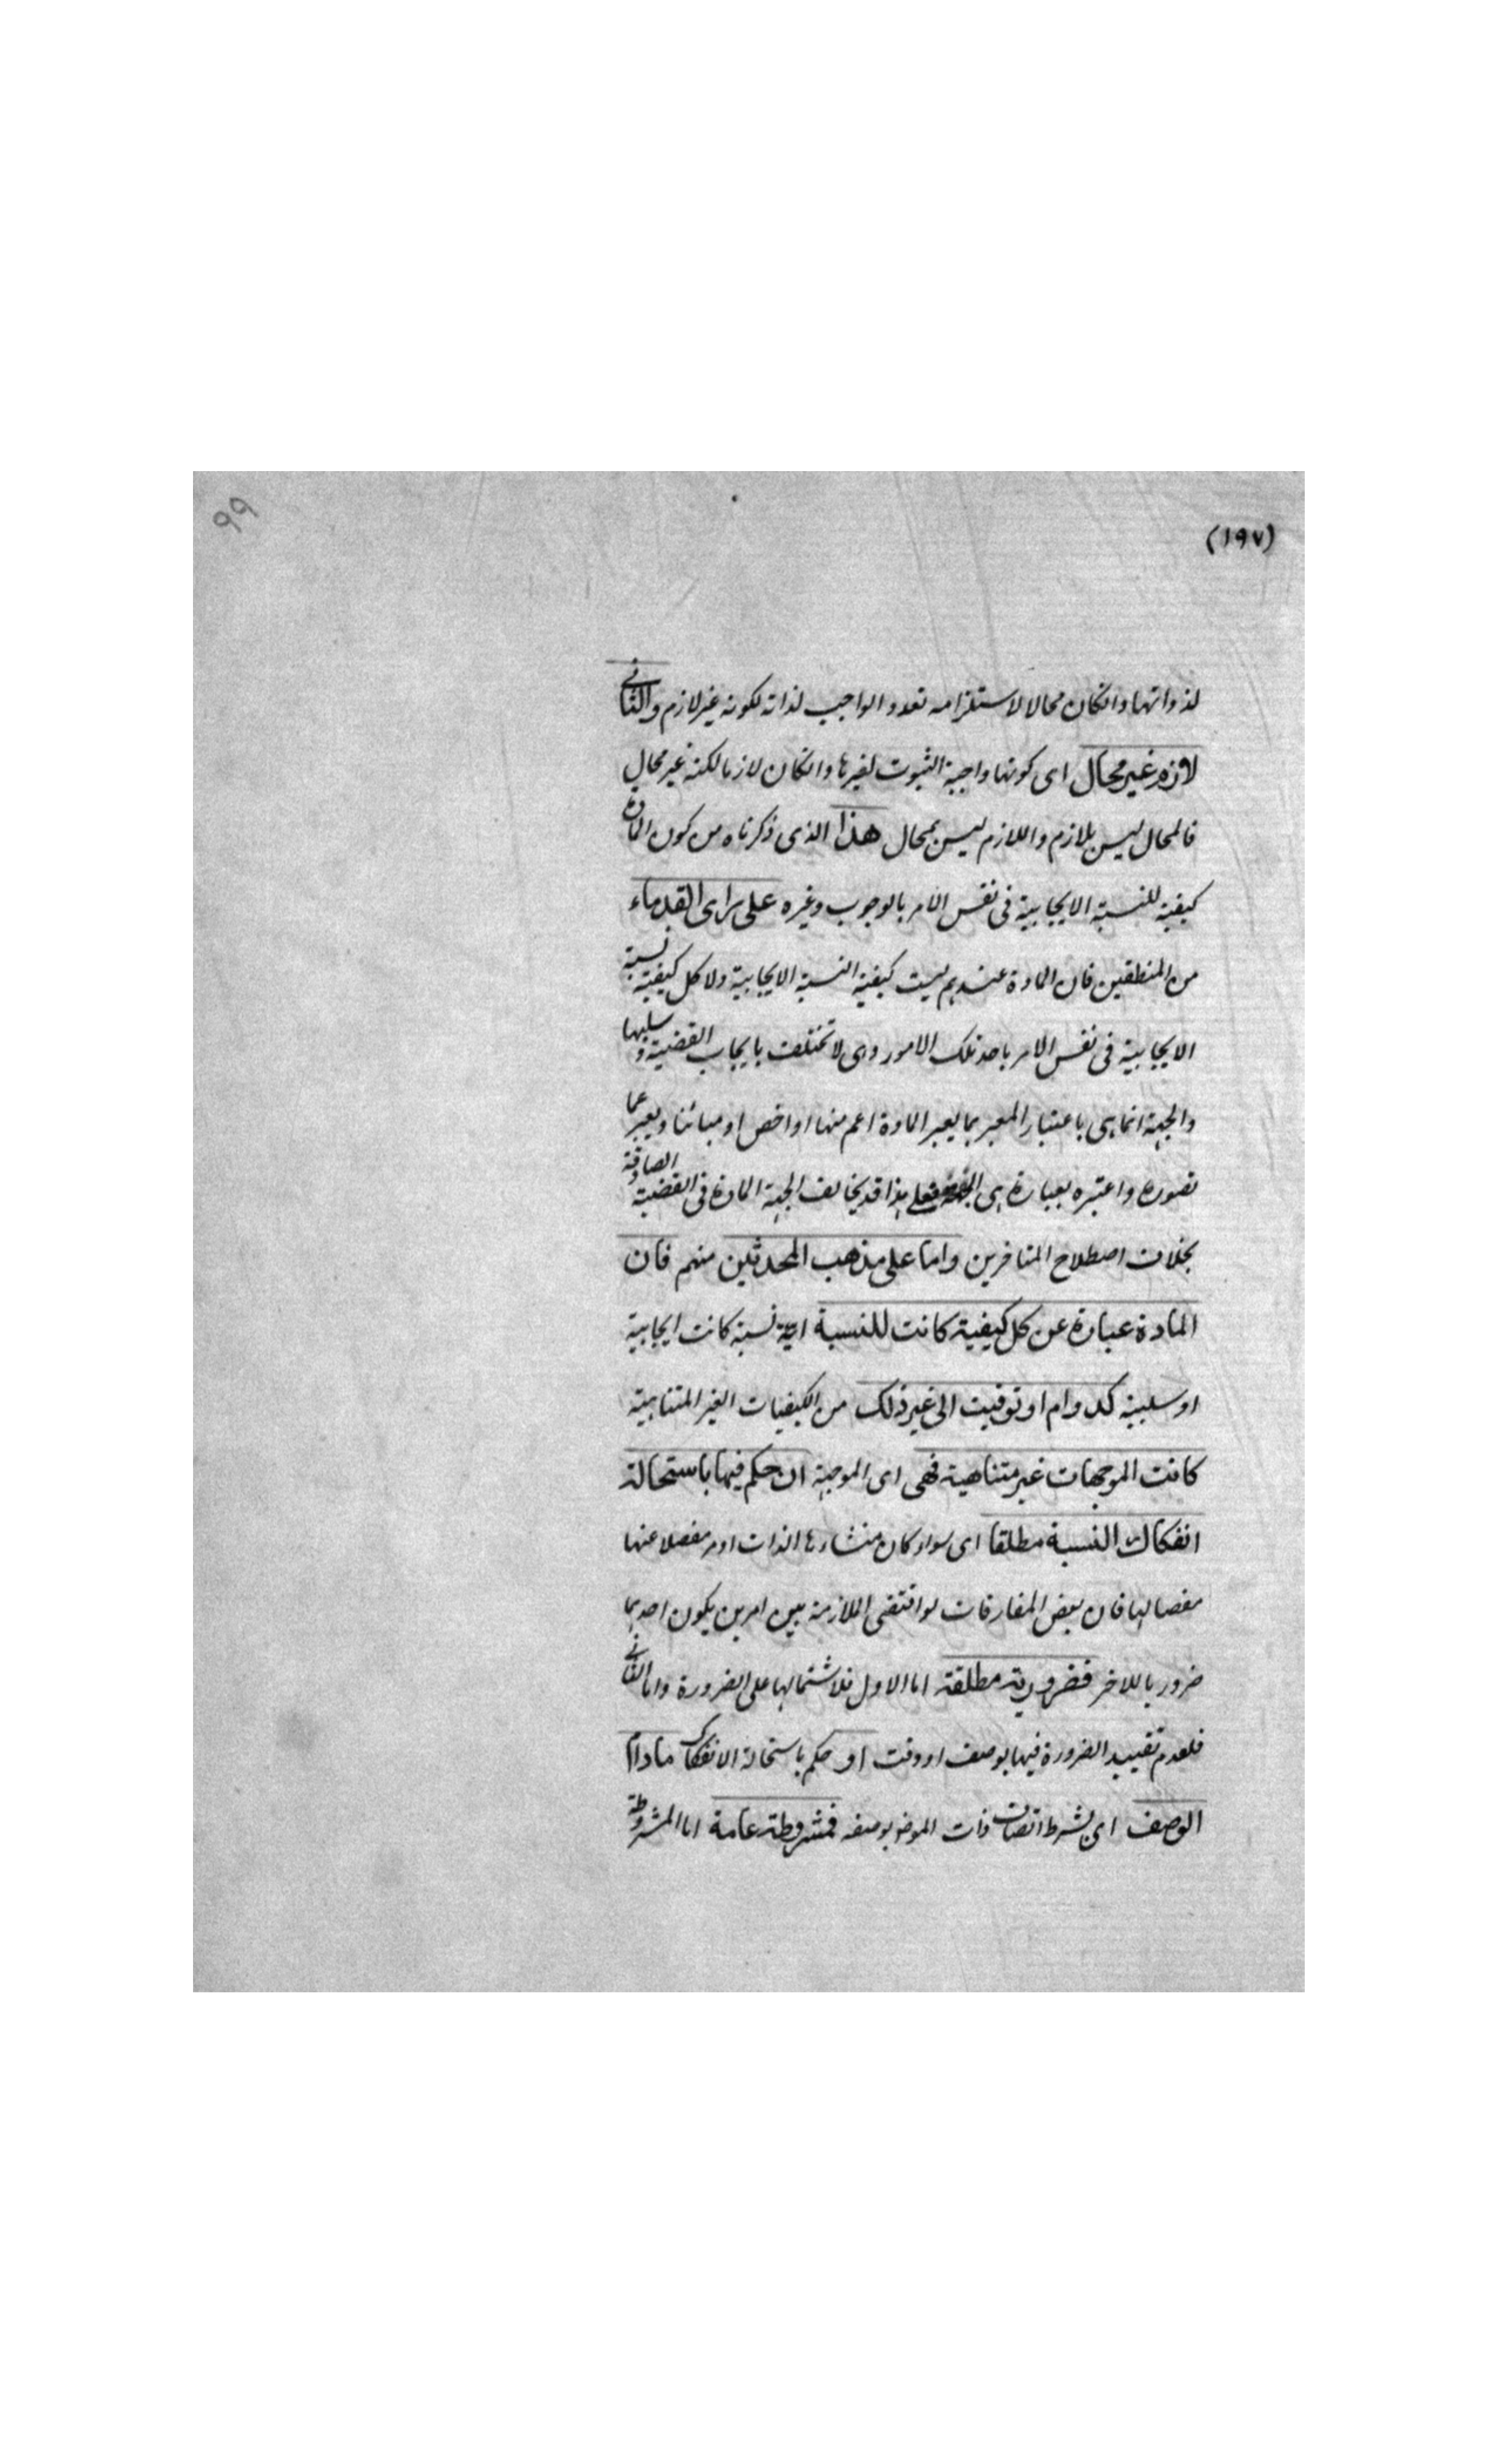 ٩٩
(١٩٧)
لذواتها وانكان محالا لاستلزامه تعدد الواجب لذاته لكونه غير لازم والثانى
لازم غير محال اى كونها واجبة الثبوت لغيرها وانكان لازما لكنه غير محال
فالمحال ليس بلازم واللازم ليس بمحال هذا الذى ذكرناه من كون المادة
كيفية للنسبة الايجابية فى نفس الامر بالوجوب وغيره على راى القدماء
من المنطقين فان المادة عندهم ليست كيفية النسبة الايجابية ولا كل كيفية نسبة
الايجابية فى نفس الامر باحد تلك الامور وهى لا تختلف بايجاب القضية وسلبها
والجهة انما هى باعتبار المعبر بما يعبر المادة اعم منها او اخص او مبائنا ويعبر عما
تصوره واعتبره بعبارة هى فعلى هذا قد يخالف الجهة المادة فى القضية الصادقة
بخلاف اصطلاح المتاخرين واما على مذهب المحدثين منهم فان
المادة عبارة عن كل كيفية كانت للنسبة اية نسبة كانت ايجابية
او سلبية كدوام او توقيت الى غير ذلك من الكيفيات الغير المتناهية
كانت الموجهات غير متناهية فهى اى الموجهة ان حكم فيها باستحالة
انفكاك النسبة مطلقا اى سواء كان منشاءها الذات او امر مفصلا عنها
مفصا لها فان بعض المفارقات لو اقتضى الملازمة بين امرين يكون احدهما
ضروريا للاخر فضرورية مطلقة اما الاول فلاشتمالها على الضرورة واما الثانى
فلعدم تقييد الضرورة فيها بوصف او وقت او حكم باستحالة الانفكاك مادام
الوصف اى بشرط اتصاف ذات الموضو بوصفه فمشروطة عامة اما المشروطة